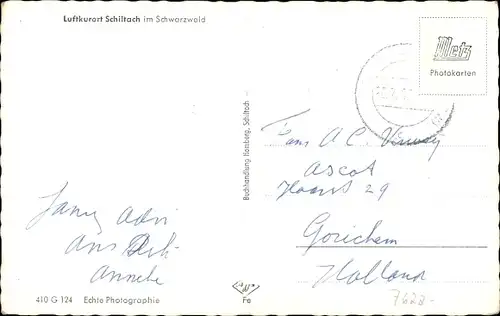 Luftkurort Schiltach im Schwarzwald
Metz
Photokarten
Buchhandlung Homberg, Schiltach
Fam A C
Ascot
29
Gorichem
Holland
Jany Adri
Ans
Anneke
7628-
410 G 124 Echte Photographie
Fa